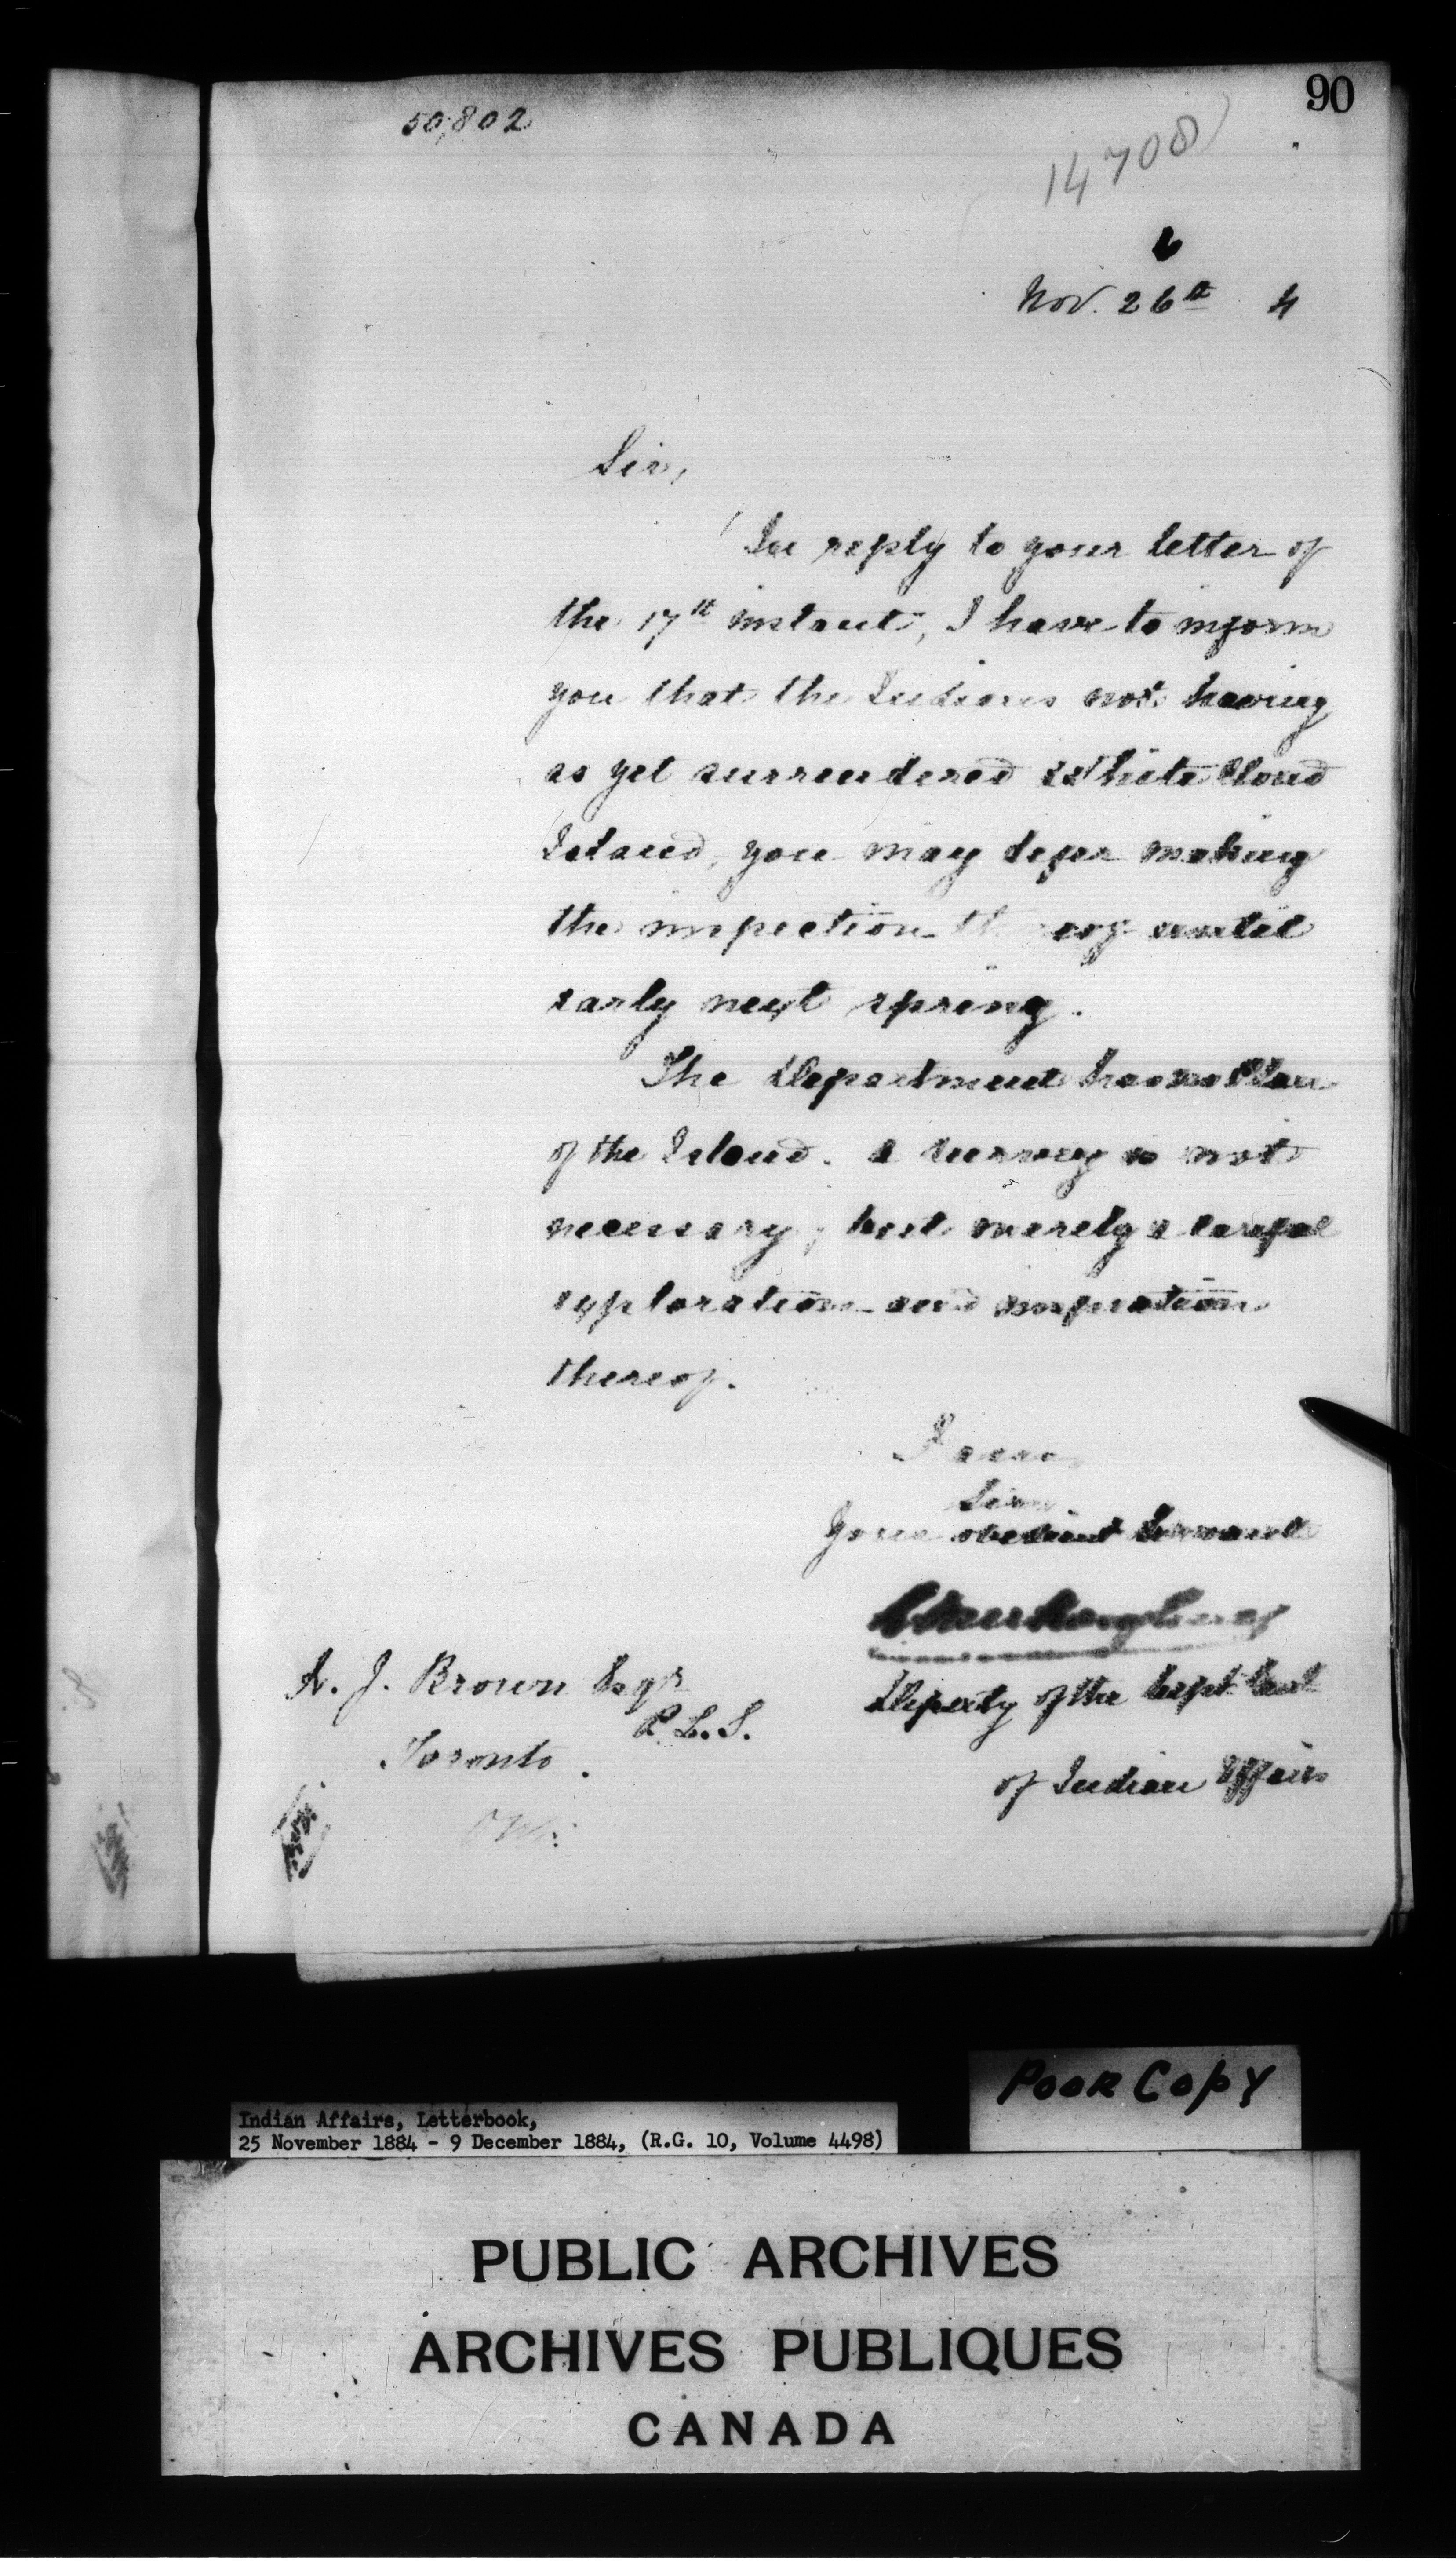 90
50,802
14708
Nov. 26th 4
Sir,
In reply to your letter of
the 17th instant, I have to inform
you that the Indians not having
as yet surrendered White Cloud
Island, you may defer making
the inspection thereof until
early next spring.
The Department has no Plan
of the Island. A survey is not
necessary; but merely a careful
exploration and inspection
thereof.
I am,
Sir,
Your obedient Servant
Deputy of the Supt Genl
of Indian Affairs
A. J. Brown Esqr
P.L.S.
Toronto.
Poor Copy
Indian Affairs, Letterbook,
25 November 1884 - 9 December 1884, (R.G. 10, Volume 4498)
PUBLIC ARCHIVES
ARCHIVES PUBLIQUES
CANADA